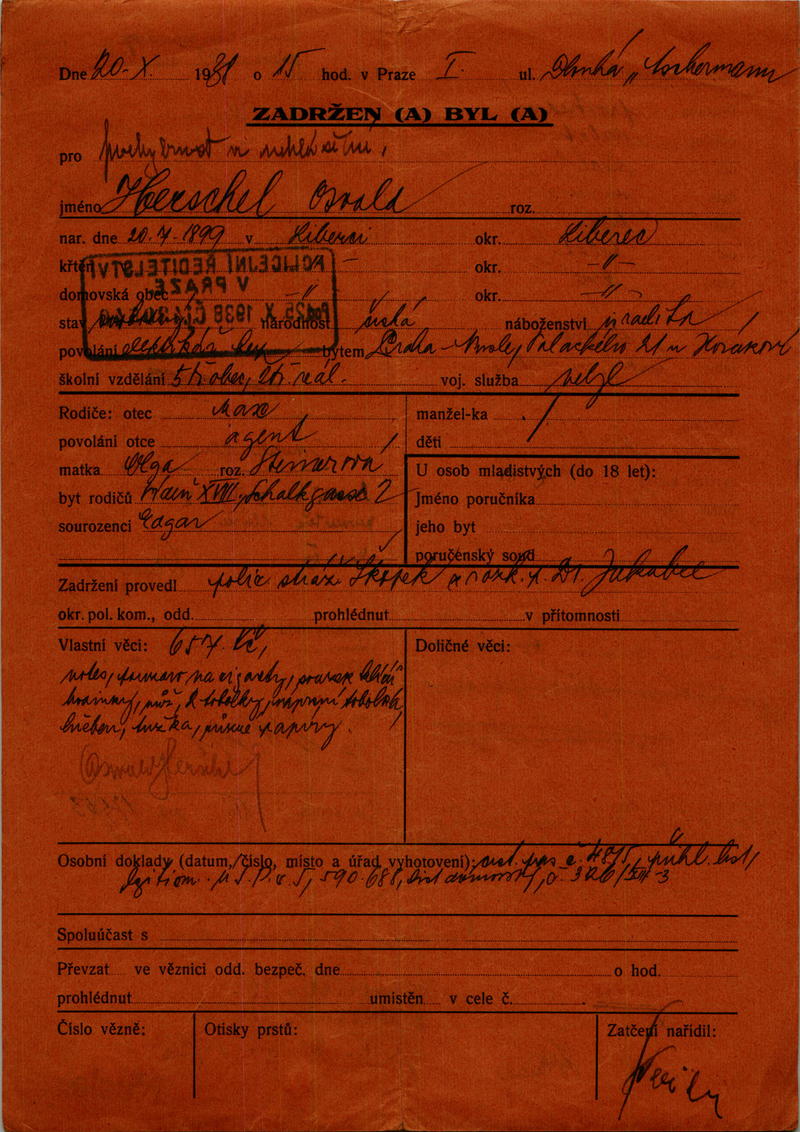 Dne 20-X. 1938 o 15 hod. v Praze I. ul. Dlouhá „Aschermann
ZADRŽEN (A) BYL (A)
pro pochybnost v
jméno Herschel Osvald roz.
nar. dne 20.7.1899 v Liberci okr. Liberec
křtěn — okr. –"–
domovská obec –"– okr. –"–
POLICEJNÍ ŘEDITELSTVÍ
V PRAZE
25. X. 1938
stav národnost česká náboženství
povolání bytem Praha - Nusle, Palackého 21 u Horákové
školní vzdělání 5 tř. obec, tř. reál. voj. služba nebyl
Rodiče: otec Max manžel-ka
povolání otce agent děti
matka Olga roz. Steinerová U osob mladistvých (do 18 let):
byt rodičů Vídeň XVIII, Schalkgasse 2 Jméno poručníka
sourozenci Edgar jeho byt
poručenský soud
Zadržení provedl polic. stráž. Škopek a rozk. p. Dr. Jakubec
okr. pol. kom., odd. prohlédnut v přítomnosti
Vlastní věci: 657 Kč, Doličné věci:
notes, na cigarety,
nůž, 2 tobolky, náprsní tobolka,
hřeben, tužka, různé papíry.
Oswald Herschel
Osobní doklady (datum, číslo, místo a úřad vyhotovení): cest. pas č. 4815, přihl. list,
590.688, list domovský, č. 326/
Spoluúčast s
Převzat ve věznici odd. bezpeč. dne o hod.
prohlédnut umístěn v cele č. .
Číslo vězně: Otisky prstů: Zatčení nařídil: